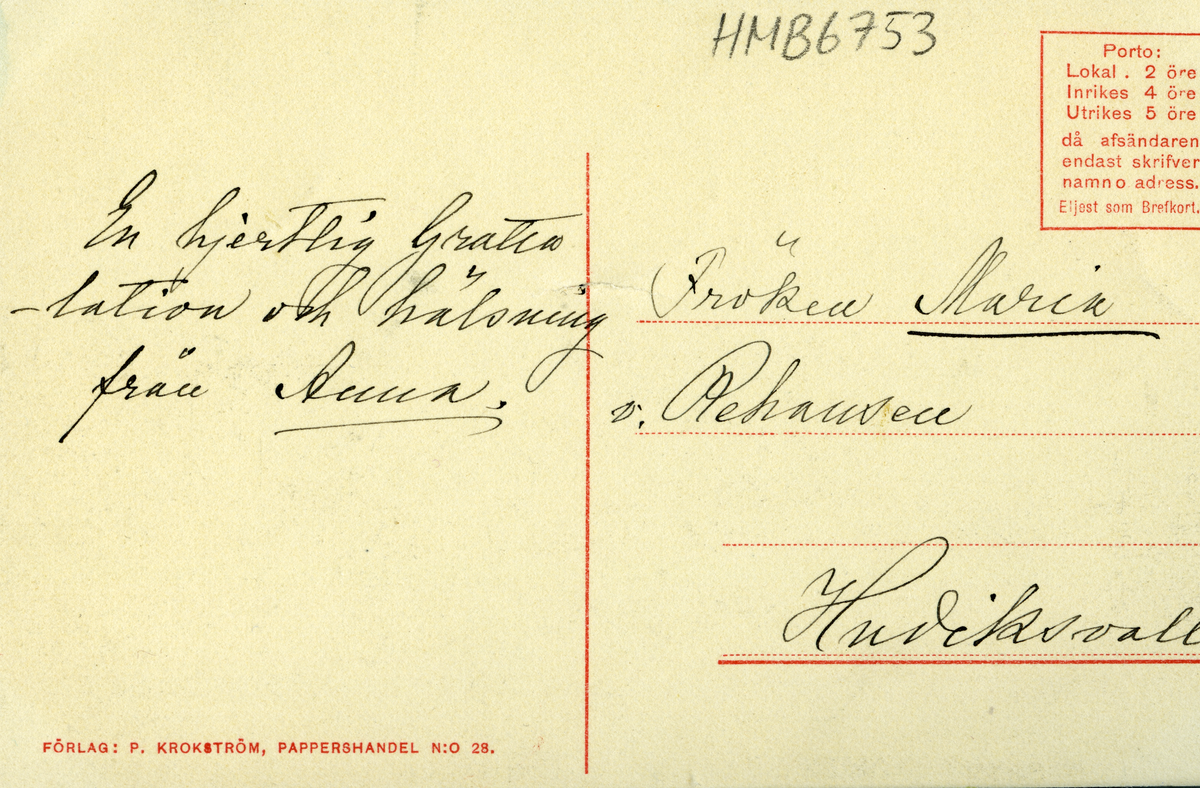 HMB6753
Porto:
Lokal . 2 öre
Inrikes 4 öre
Utrikes 5 öre
då afsändaren
endast skrifver
namn o adress.
Eljest som Brefkort.
En hjertlig Gratu
-lation och hälsning
från Anna.
Fröken Maria
v. Rehausen
Hudiksvall
FÖRLAG: P. KROKSTRÖM, PAPPERSHANDEL N:O 28.